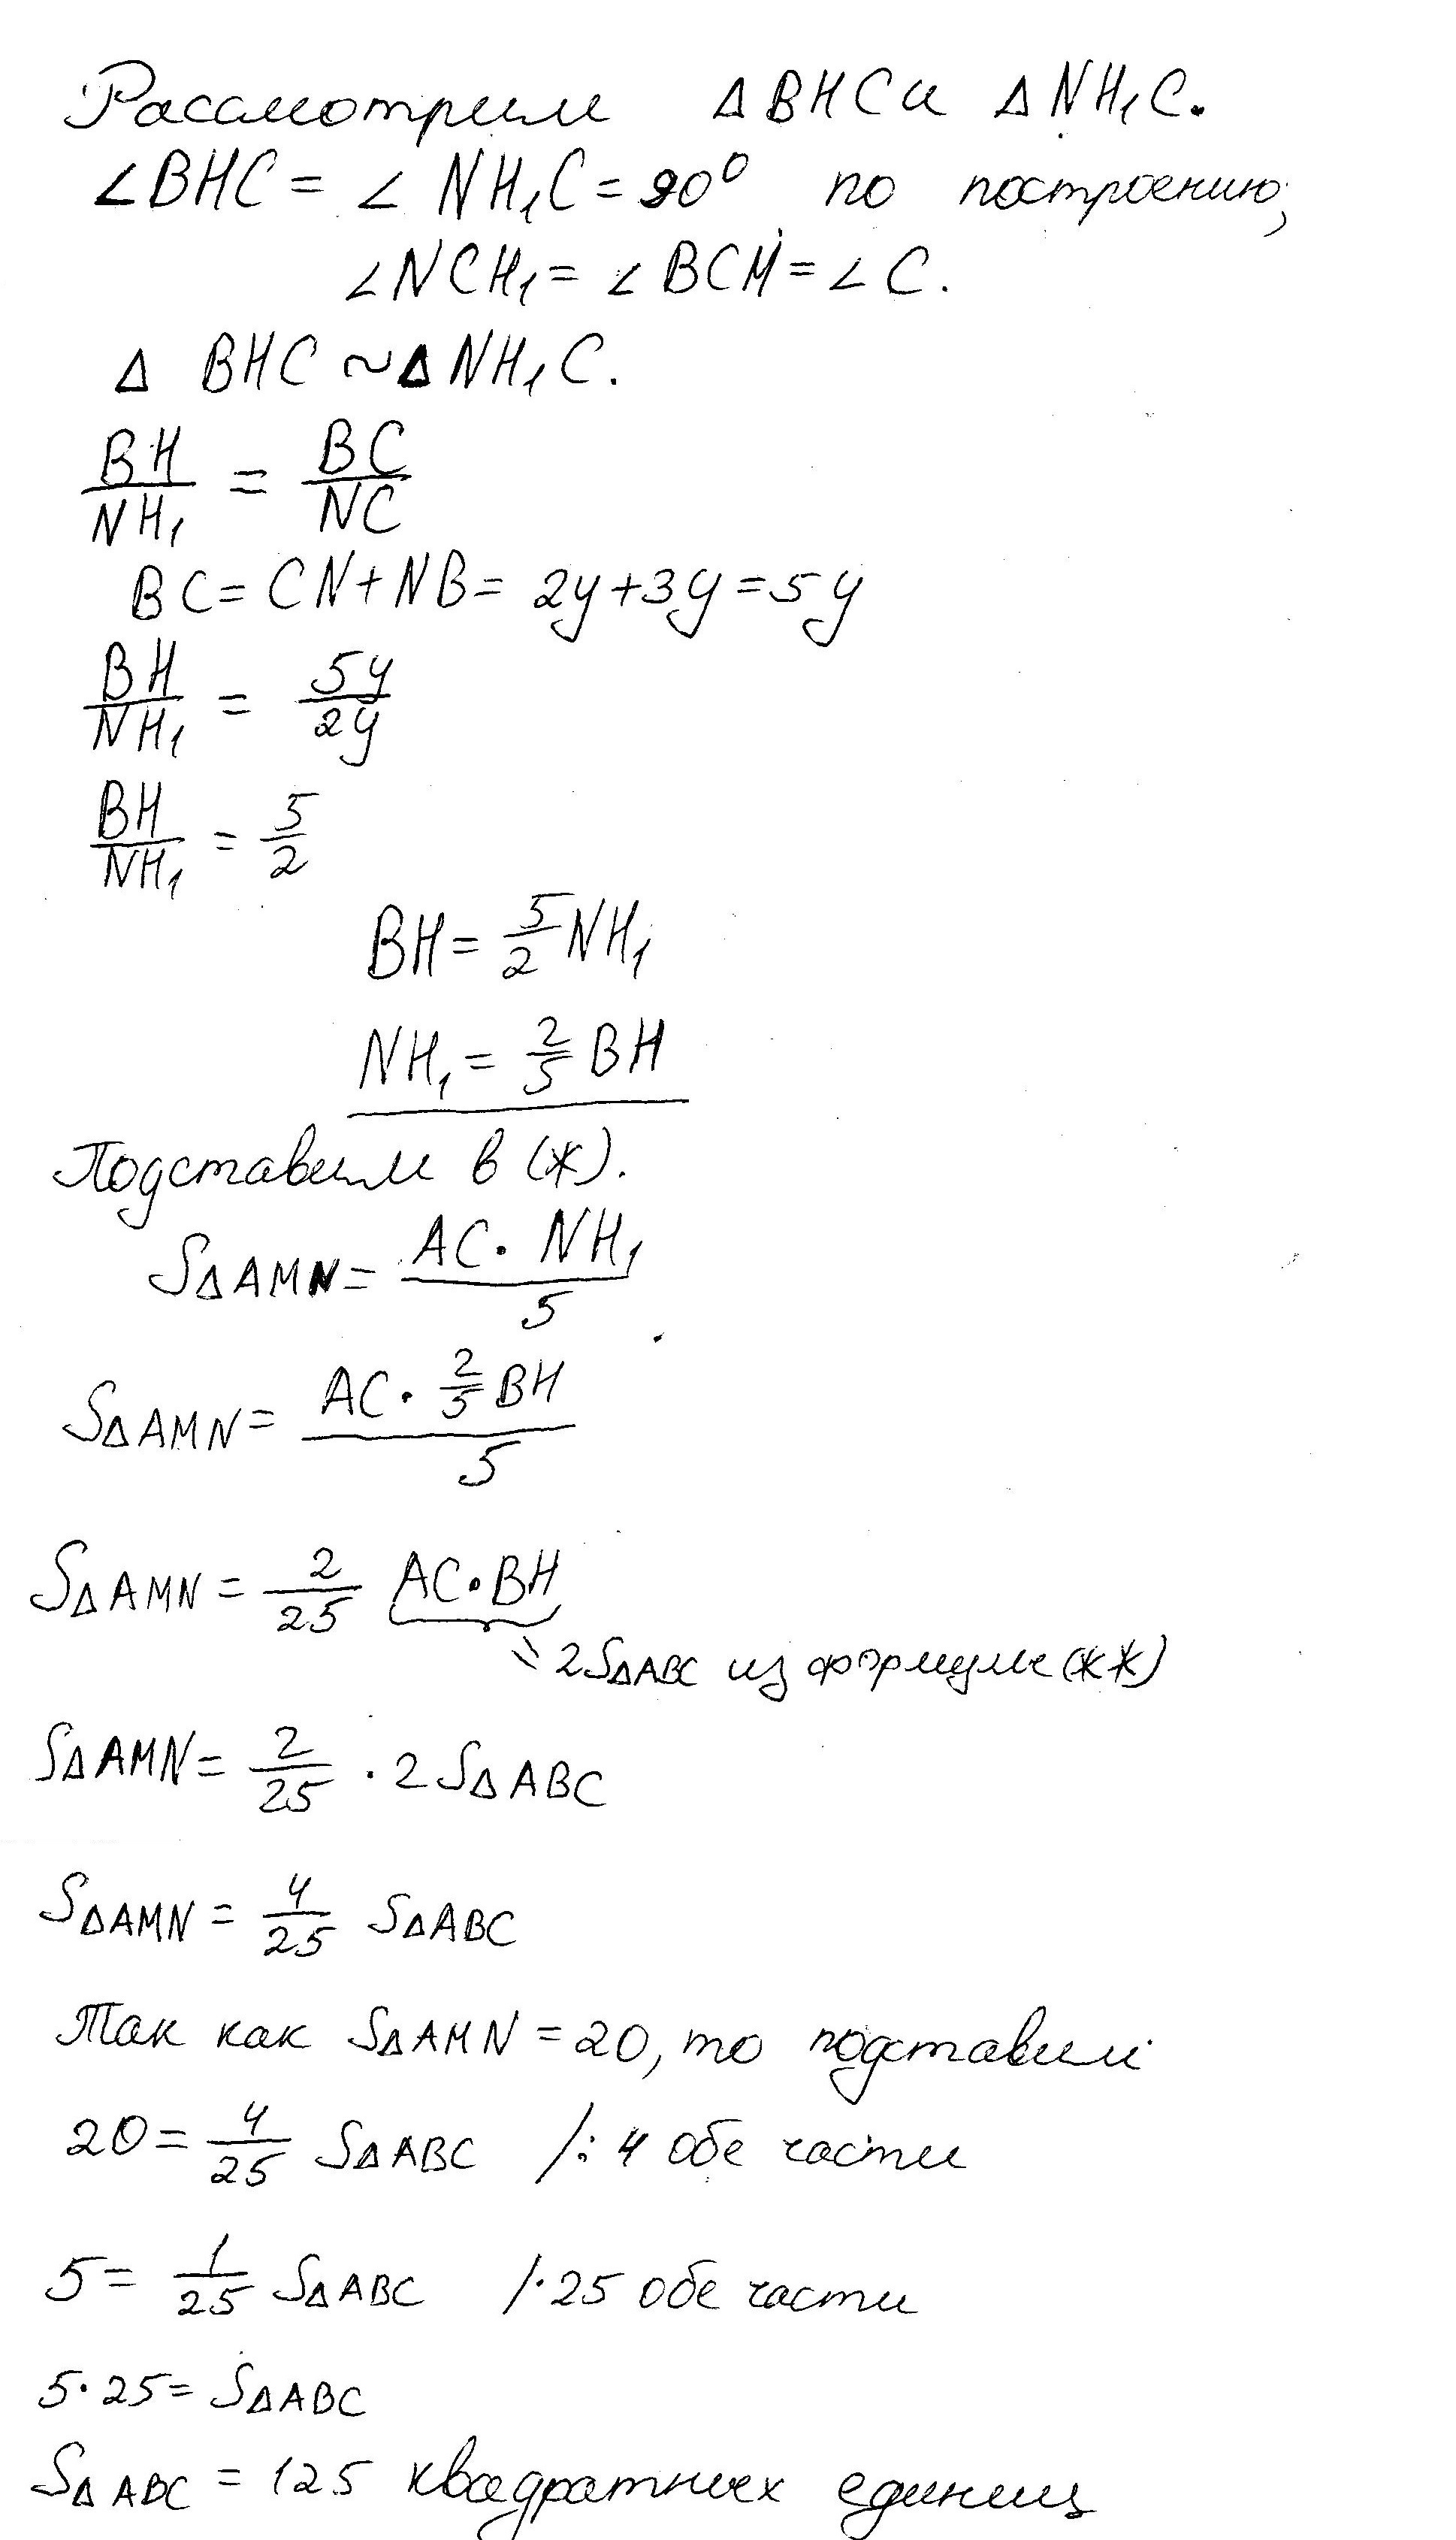 Рассмотрим ΔBHC и ΔNH₁C.
∠BHC = ∠NH₁C = 90° по построению,
∠NCH₁ = ∠BCH = ∠C.
Δ BHC ~ Δ NH₁C.
BH/NH₁ = BC/NC
BC = CN + NB = 2y + 3y = 5y
BH/NH₁ = 5y/2y
BH/NH₁ = 5/2
BH = 5/2 NH₁
NH₁ = 2/5 BH
Подставим в (*).
SΔAMN = AC · NH₁/5
SΔAMN = AC · 2/5 BH/5
SΔAMN = 2/25 AC · BH
= 2SΔABC из формулы (**)
SΔAMN = 2/25 · 2SΔABC
SΔAMN = 4/25 SΔABC
Так как SΔAMN = 20, то подставим
20 = 4/25 SΔABC /: 4 обе части
5 = 1/25 SΔABC /· 25 обе части
5 · 25 = SΔABC
SΔABC = 125 квадратных единиц